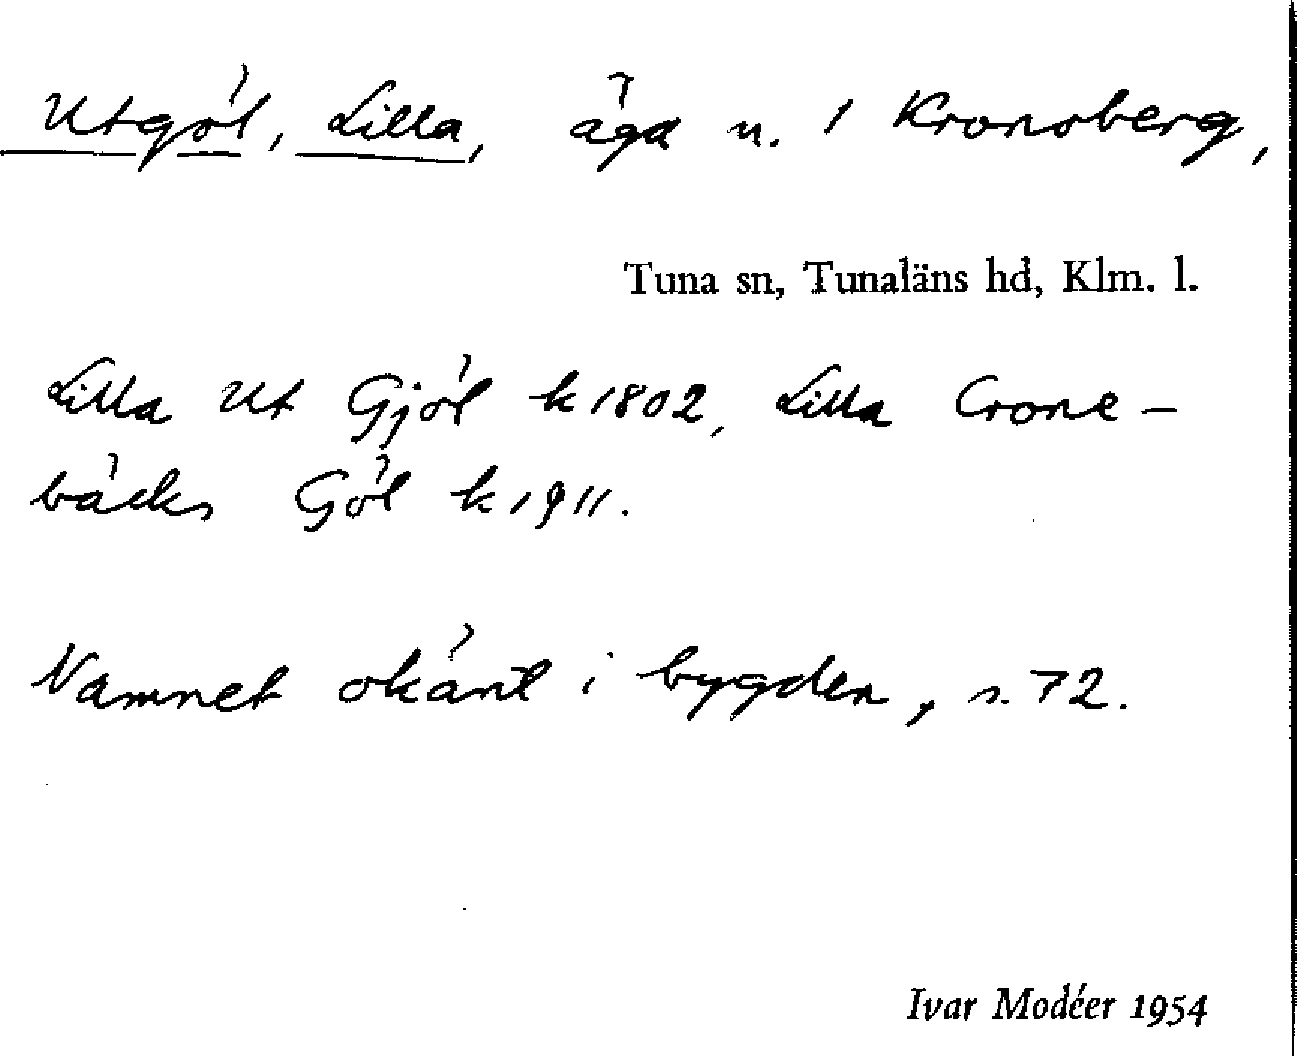 Utgöl, Lilla, äga u. 1 Kronsberg,
Tuna sn, Tunaläns hd, Klm. l.
Lilla Ut Gjöl k 1802, Lilla Crone-
bäcks Göl k 1911.
Namnet okänt i bygden, s. 72.
Ivar Modéer 1954